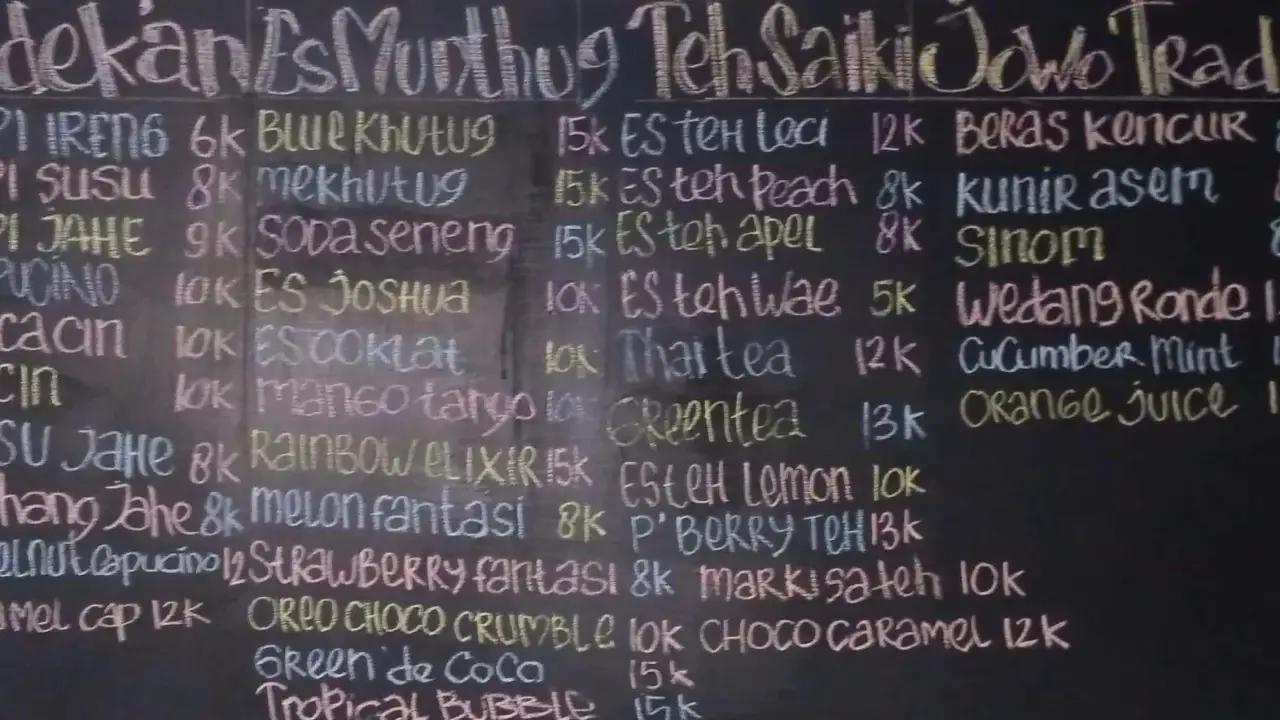 dekan Es Munthug Teh Saiki Jowo Trad
PI IRENG 6K BLUE KHUTUG 15K ES teH Leci 12K BERAS KENCUR
PI SUSU 8K meKHUTUG 15K ES teh Peach 8K KUNIR asem
PI JAHE 9K SODA seneng 15K ES teh apel 8K SINOM
PUCINO 10K ES JOSHUA 10K ES teh Wae 5K Wedang Ronde 1
cacin 10K ES COKLat 10K Thai tea 12K CUCUMBER Mint
CIN 10K mango tango 10K Greentea 13K ORANGE juice 1
SU JAHE 8K RAINBOW ELIXIR 15K ES teH Lemon 10K
hang Jahe 8K melon fantasi 8K P'BERRY TEH 13K
elnut Capucino 12 StRAWBERRY fantasi 8K markisa teh 10K
amel cap 12K OREO CHOCO CRUMBLE 10K CHOCO CARAMEL 12K
Green de COCO 15K
TROPICAL BUBBLE 15K